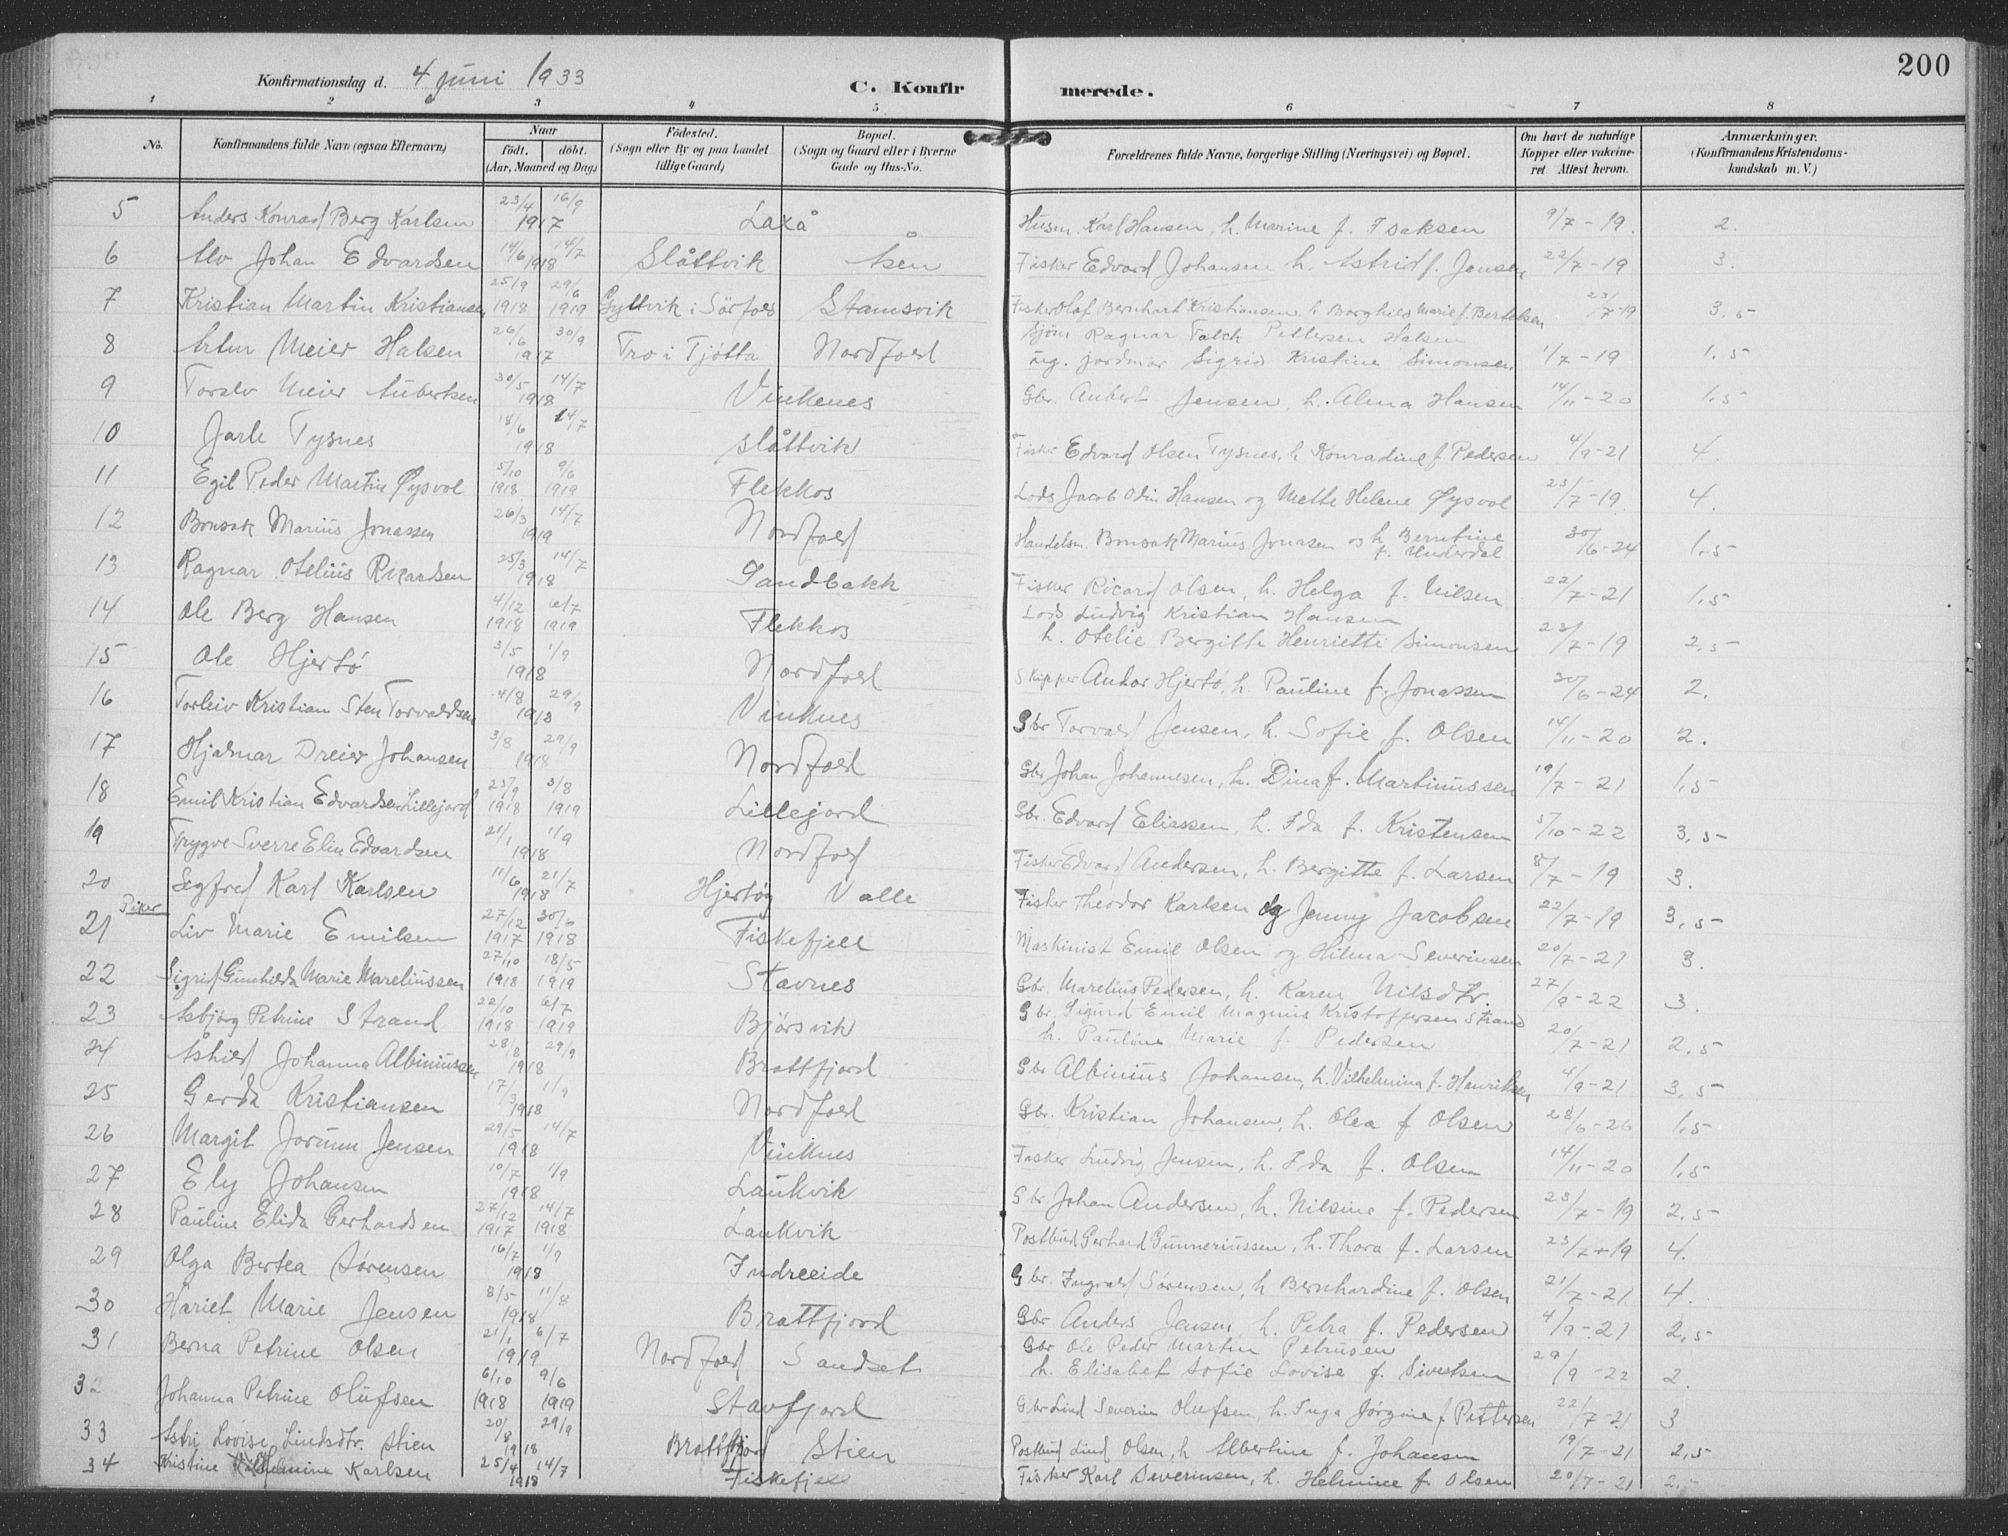 200
Konfirmationsdag d. 4 juni 1933
C. Konfirmerede.
1 2 3 4 5 6 7 8
No.
Konfirmandens fulde Navn (ogsaa Efternavn)
Naar
født. døbt.
(Aar, Maaned og Dag)
Fødested.
(Sogn eller By og paa Landet
tillige Gaard)
Bopæl.
(Sogn og Gaard eller i Byerne
Gade og Hus-No.
Forældrenes fulde Navne, borgerlige Stilling (Næringsvei) og Bopæl.
Om havt de naturlige
Kopper eller vakcine-
ret. Attest herom.
Anmærkninger.
(Konfirmandens Kristendoms-
kundskab m. V.)
5 Anders Konrad Berg Karlsen 23/4 16/9 1917 Laxå Husm. Karl Hansen, h. Marine f. Isaksen 9/7-19. 2.
6 Alv Johan Edvardsen 14/6 14/7 1918 Slåttvik Åsen Fisker Edvard Johansen h. Astrid f. Jensen 22/7-19 3.
7 Kristian Martin Kristiansen 25/9 1918 29/6 1919 Gyltvik i Sørfold Stamsvik Fisker Olaf Bernhart Kristiansen h Borghild Marie f. Bertelsen 23/7-19 3,5
8 Artur Meier Halsen 26/6 30/9 1917 Tro i Tjøtta Nordfold Sjøm Ragnar Falck Pettersen Halsen
ug. jordmor Sigrid Kristine Simonsen 1/7-19 1,5
9 Toralv Meier Aubertsen 30/5 14/7 1918 Vinkenes Gbr. Aubert Jensen, h. Alma Hansen 14/11-20 1,5
10 Jarle Tysnes 18/6 14/7 1918 Slåttvik Fisker Edvard Olsen Tysnes, h Konradine f. Pedersen 4/9-21 4.
11 Egil Peder Martin Øysvol 5/10 1918 9/6 1919 Flekkos Lods Jacob Odin Hansen og Mette Helene Øysvol 23/7-19 4.
12 Bonsak Marius Jonassen 26/3 14/7 1919 Nordfold Handelsm. Bonsak Marius Jonasen og h Berntine
f. Underdal 30/6-24 1,5
13 Ragnar Otelius Ricardsen 25/3 14/7 1918 Sandbakk Fisker Ricard Olsen, h. Helga f. Nilsen 22/7-21 1,5
14 Ole Berg Hansen 4/12 1918 6/7 1919 Flekkos Lods Ludvig Kristian Hansen
h. Otelie Bergitte Henriette Simonsen 23/7-19 2,5
15 Ole Hjertø 3/5 1/9 1918 Nordfold Skipper Ankor Hjertø, h. Pauline f. Jonassen 30/6-24 2.
16 Torleiv Kristian Sten Torvaldsen 4/8 29/9 1918 Vinknes Gbr Torvald Jensen, h. Sofie f. Olsen 14/11-20 2.
17 Hjalmar Dreier Johansen 3/8 29/9 1918 Nordfold Gbr Johan Johannesen, h. Dina f. Martinussen 19/7-21 1,5
18 Emil Kristian Edvardsen Lillejord 23/9 1918 3/8 1919 Lillejord Gbr. Edvard Eliassen, h. Ida f. Kristensen 5/10-22 3,5
19 Trygve Sverre Elin Edvardsen 21/1 1/9 1918 Nordfold Fisker Edvard Andersen, h. Bergitte f. Larsen 8/7-19 3.
20 Sigfred Karl Karlsen 11/6 21/7 1918 Hjertøy Valle Fisker Theodor Karlsen og Jenny Jacobsen 22/7-19 3,5
Piker
21 Liv Marie Emilsen 27/12 1917 30/6 1918 Fiskefjell Maskinist Emil Olsen og Hilma Severinsen 20/7-21 3.
22 Sigrid Gunhilda Marie Mareliussen 27/10 1918 18/5 1919 Stavnes Gbr. Marelius Pedersen, h. Karen Nilsdtr. 27/9-22 3.
23 Asbjørg Petrine Strand 22/10 1918 6/7 1919 Bjørsvik Gbr. Sigurd Emil Magnus Kristoffersen Strand
h. Pauline Marie f. Pedersen 20/7-21 2,5
24 Åshild Johanna Albiniussen 28/8 29/9 1918 Brattfjord Gbr Albinius Johansen, h. Vilhelmina f. Henriksen 4/9-21 3,5
25 Gerda Kristiansen 17/3 1/9 1918 Nordfold Gbr. Kristian Johansen, h. Olea f Olsen 28/6-26 1,5
26 Margit Jorunn Jensen 29/5 14/7 1918 Vinknes Fisker Ludvig Jensen, h. Ida f. Olsen 14/11-20 1,5
27 Ely Johansen 10/7 1/9 1918 Laukvik Gbr. Johan Andersen, h. Nilsine f. Pedersen 23/7-19 2,5
28 Pauline Elida Gerhardsen 27/12 1917 14/7 1918 Laukvik Postbud Gerhard Gunneriussen, h. Thora f. Larsen 23/7-19 4.
29 Olga Bertea Sørensen 16/7 1/9 1918 Indreeide Gbr. Ingvald Sørensen, h Bernhardine f. Olsen 21/7-21. 4.
30 Hariet Marie Jensen 8/5 11/8 1918 Brattfjord Gbr. Anders Jensen h. Petra f. Pedersen 4/9-21 2,5
31 Berna Petrine Olsen 21/1 6/7 1919 Nordfold Sandset Gbr Ole Peder Martin Petrusen
h. Elisabet Sofie Lovise f. Sivertsen 29/9-22 2.
32 Johanna Petrine Olufsen 6/10 1918 9/6 1919 Stavfjord Gbr Lind Severin Olufsen, h. Inga Jørgine f Pettersen 22/7-21 3
33 Astri Lovise Lindsdtr. Stien 20/8 29/9 1918 Brattfjord Stien Postbud Lind Olsen, h Albertine f. Johansen 19/7-21 2,5
34 Kristine Vilhelmine Karlsen 25/4 14/7 1918 Fiskefjell Fisker Karl Severinsen, h. Helmine f Olsen 20/7-21 2,5